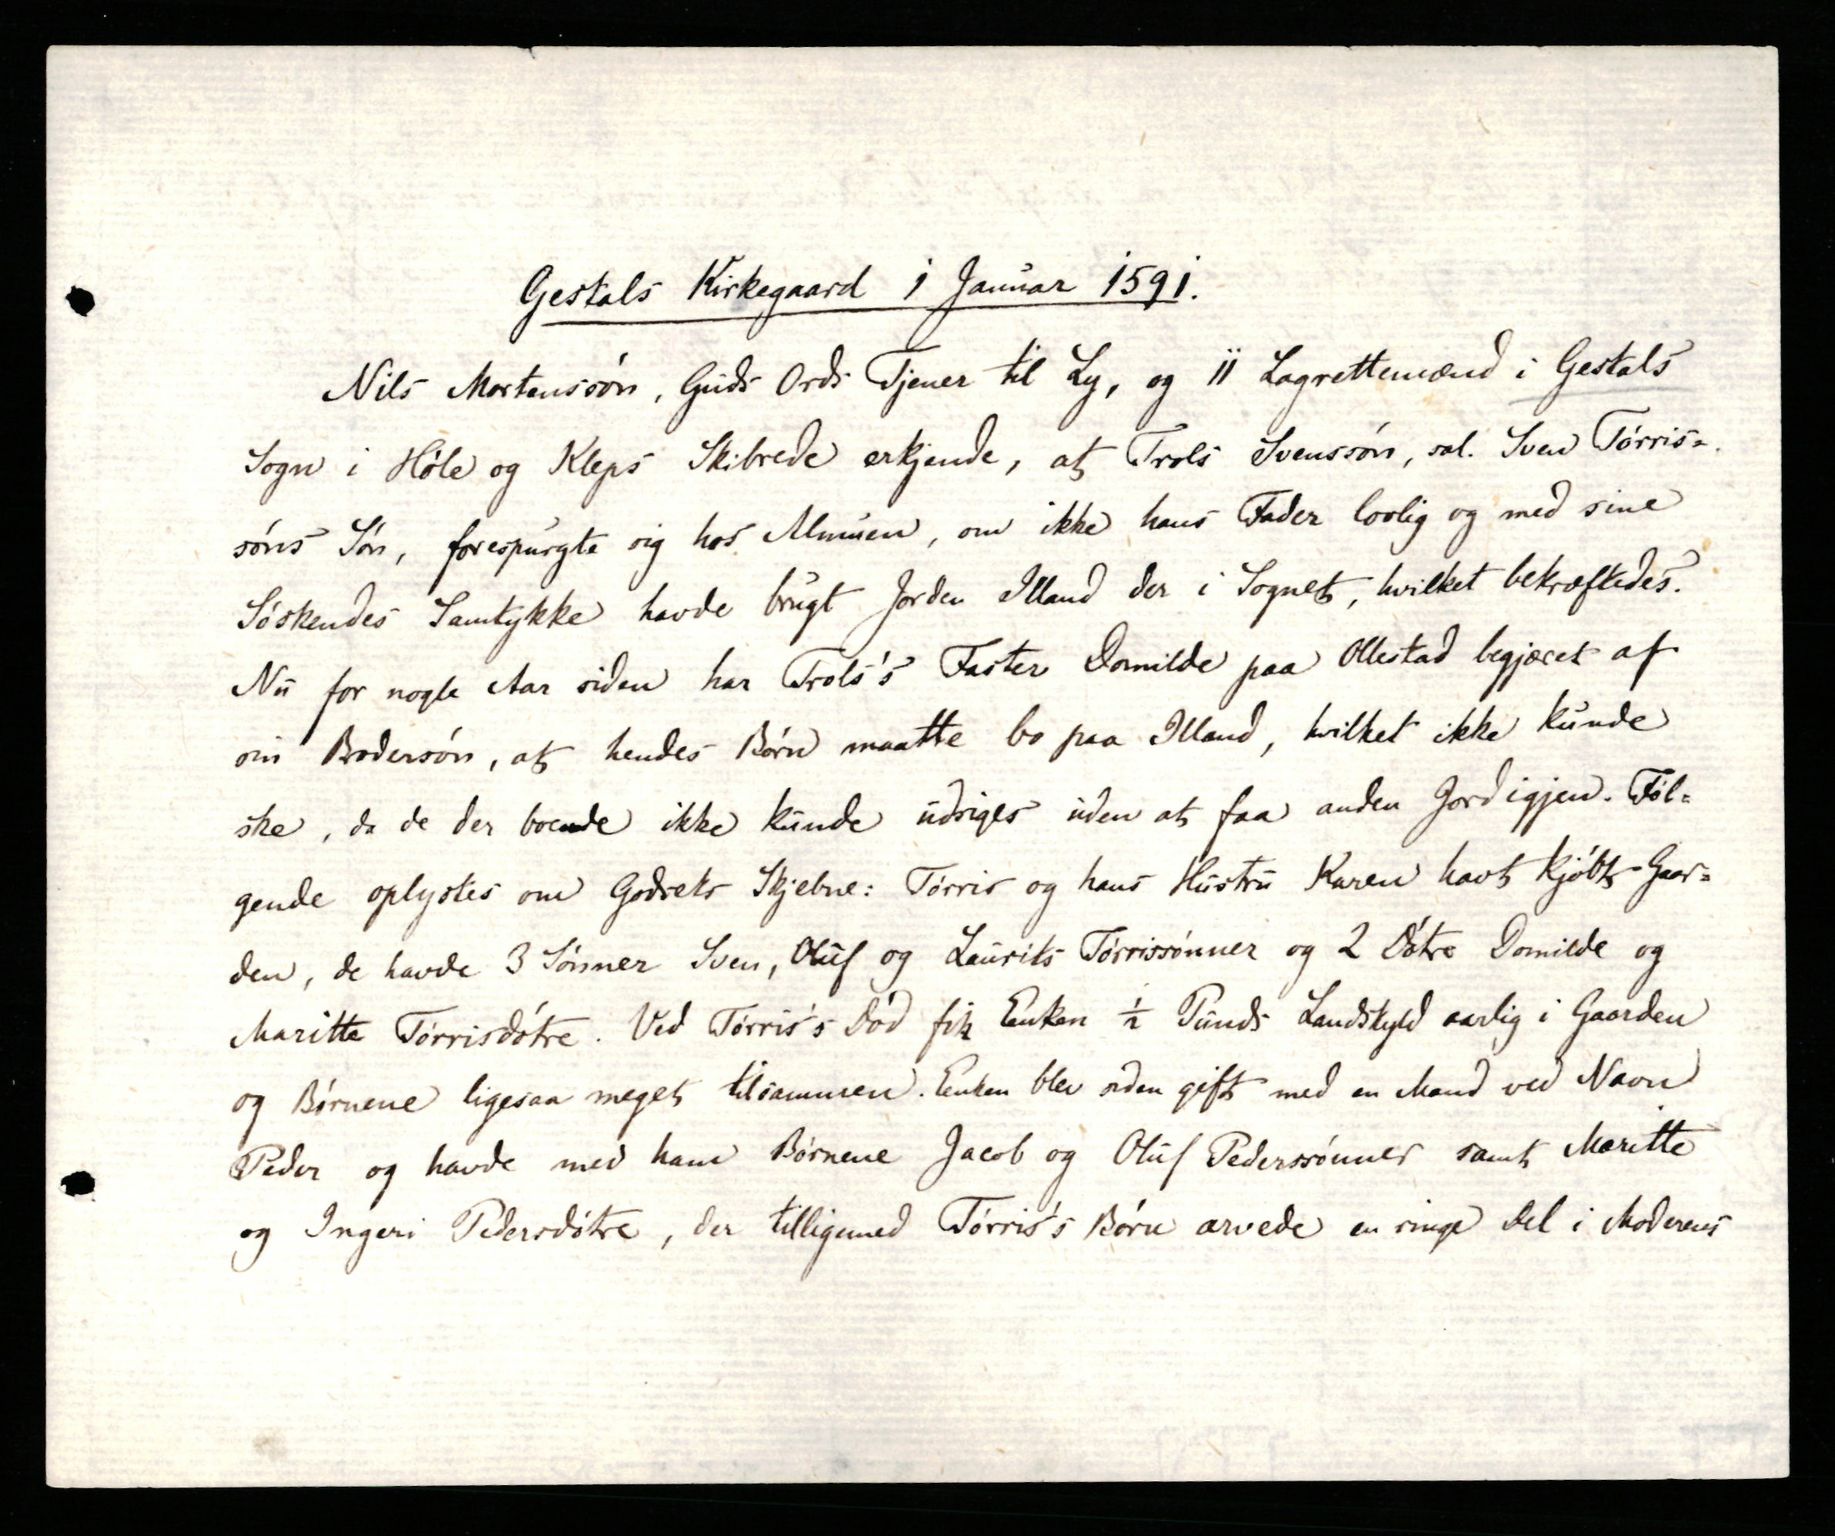 Gestals Kirkegaard 1 Januar 1591.
Nils Mortenssön, Guds Ords Tjener til Ly, og 11 Lagrettemænd i Gestals
Sogn i Höle og Kleps Skibrede erkjende, at Trols Svenssön, sal. Sven Törris=
söns Sön, forespurgte sig hos Almuen, om ikke hans Fader lovlig og med sine
Söskendes Samtykke havde brugt Jorden Illand der i Sognet, hvilket bekræftedes.
Nu for nogle Aar siden har Trols's Faster Domilde paa Ollestad begjæret af
sin Brodersön, at hendes Börn maatte bo paa Illand, hvilket ikke kunde
ske, da de der boende ikke kunde udsiges uden at faa anden Jord igjen. Föl=
gende oplystes om Godsets Skjebne: Törris og hans Hustru Karen havt kjöbt Gaar=
den, de havde 3 Sönner Sven, Oluf og Laurits Törrissönner og 2 Dötre Domilde og
Maritte Törrisdötre. Ved Törris's Död fik Enken ½ Punds Landskyld aarlig i Gaarden
og Börnene ligesaa meget tilsammen. Enken blev siden gift med en Mand ved Navn
Peder og havde med ham Börnene Jacob og Oluf Pederssönner samt Maritte
og Ingeri Pedersdötre, der tilligemed Törris's Börn arvede en ringe Del i Moderens